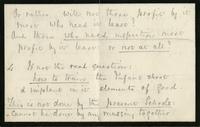 will not those profit by it
most who need it least?
And those who need inspection most
profit by it least or not at all?
Is not the real question:
how to train the Infant about
& implant in it elements of good
This is not done by the present Schools:
cannot be done by any massing together